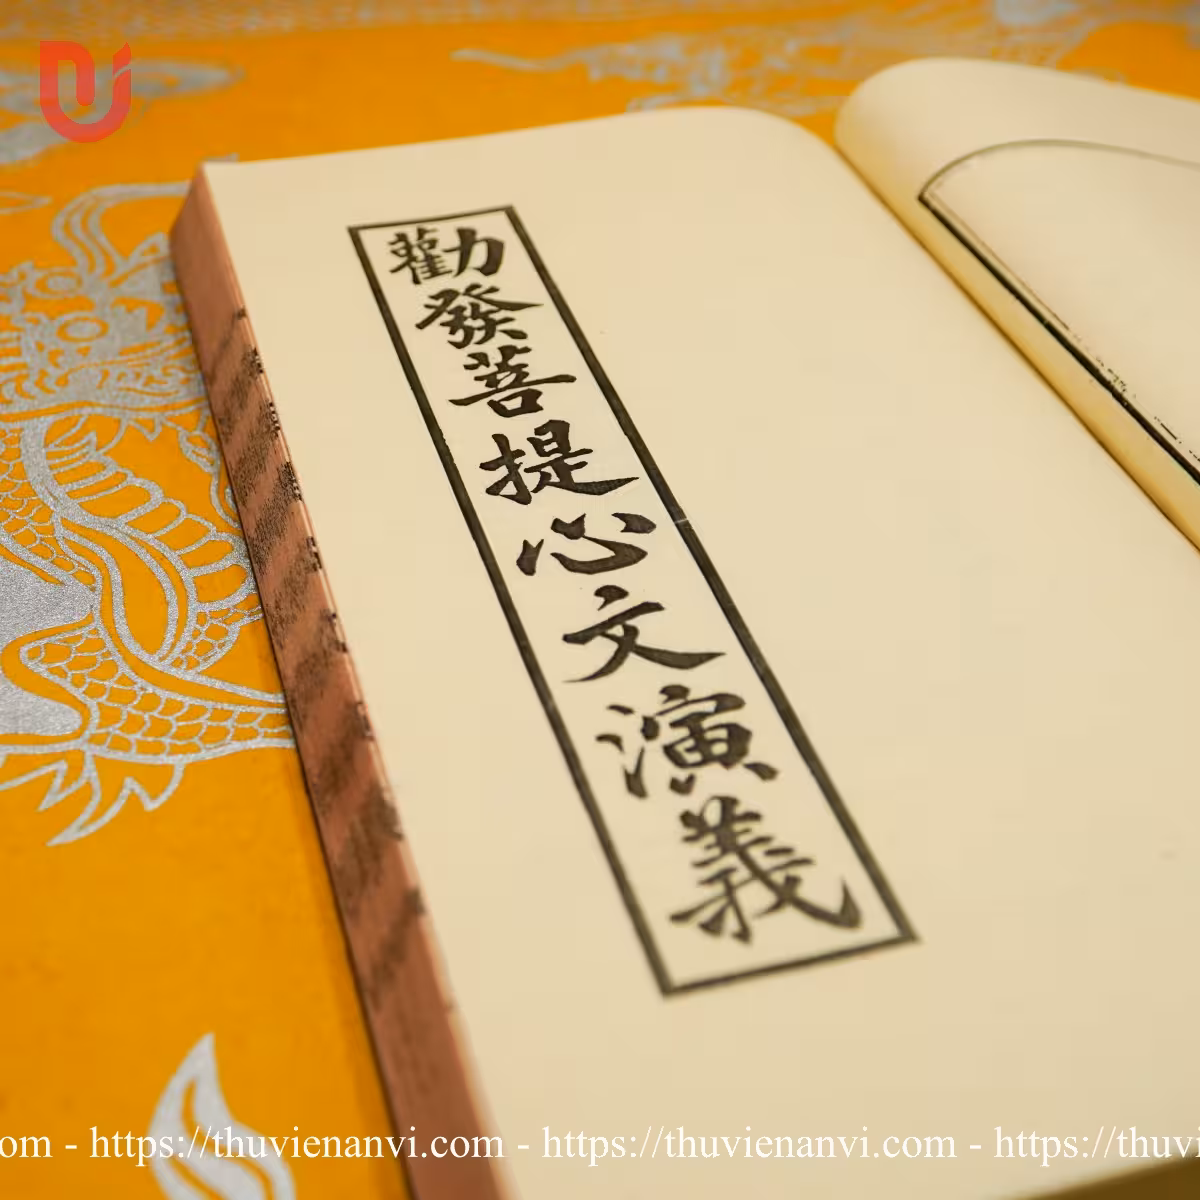 勸發菩提心文演義
om - https://thuvienanvi.com - https://thuvienanvi.com - https://thuvi